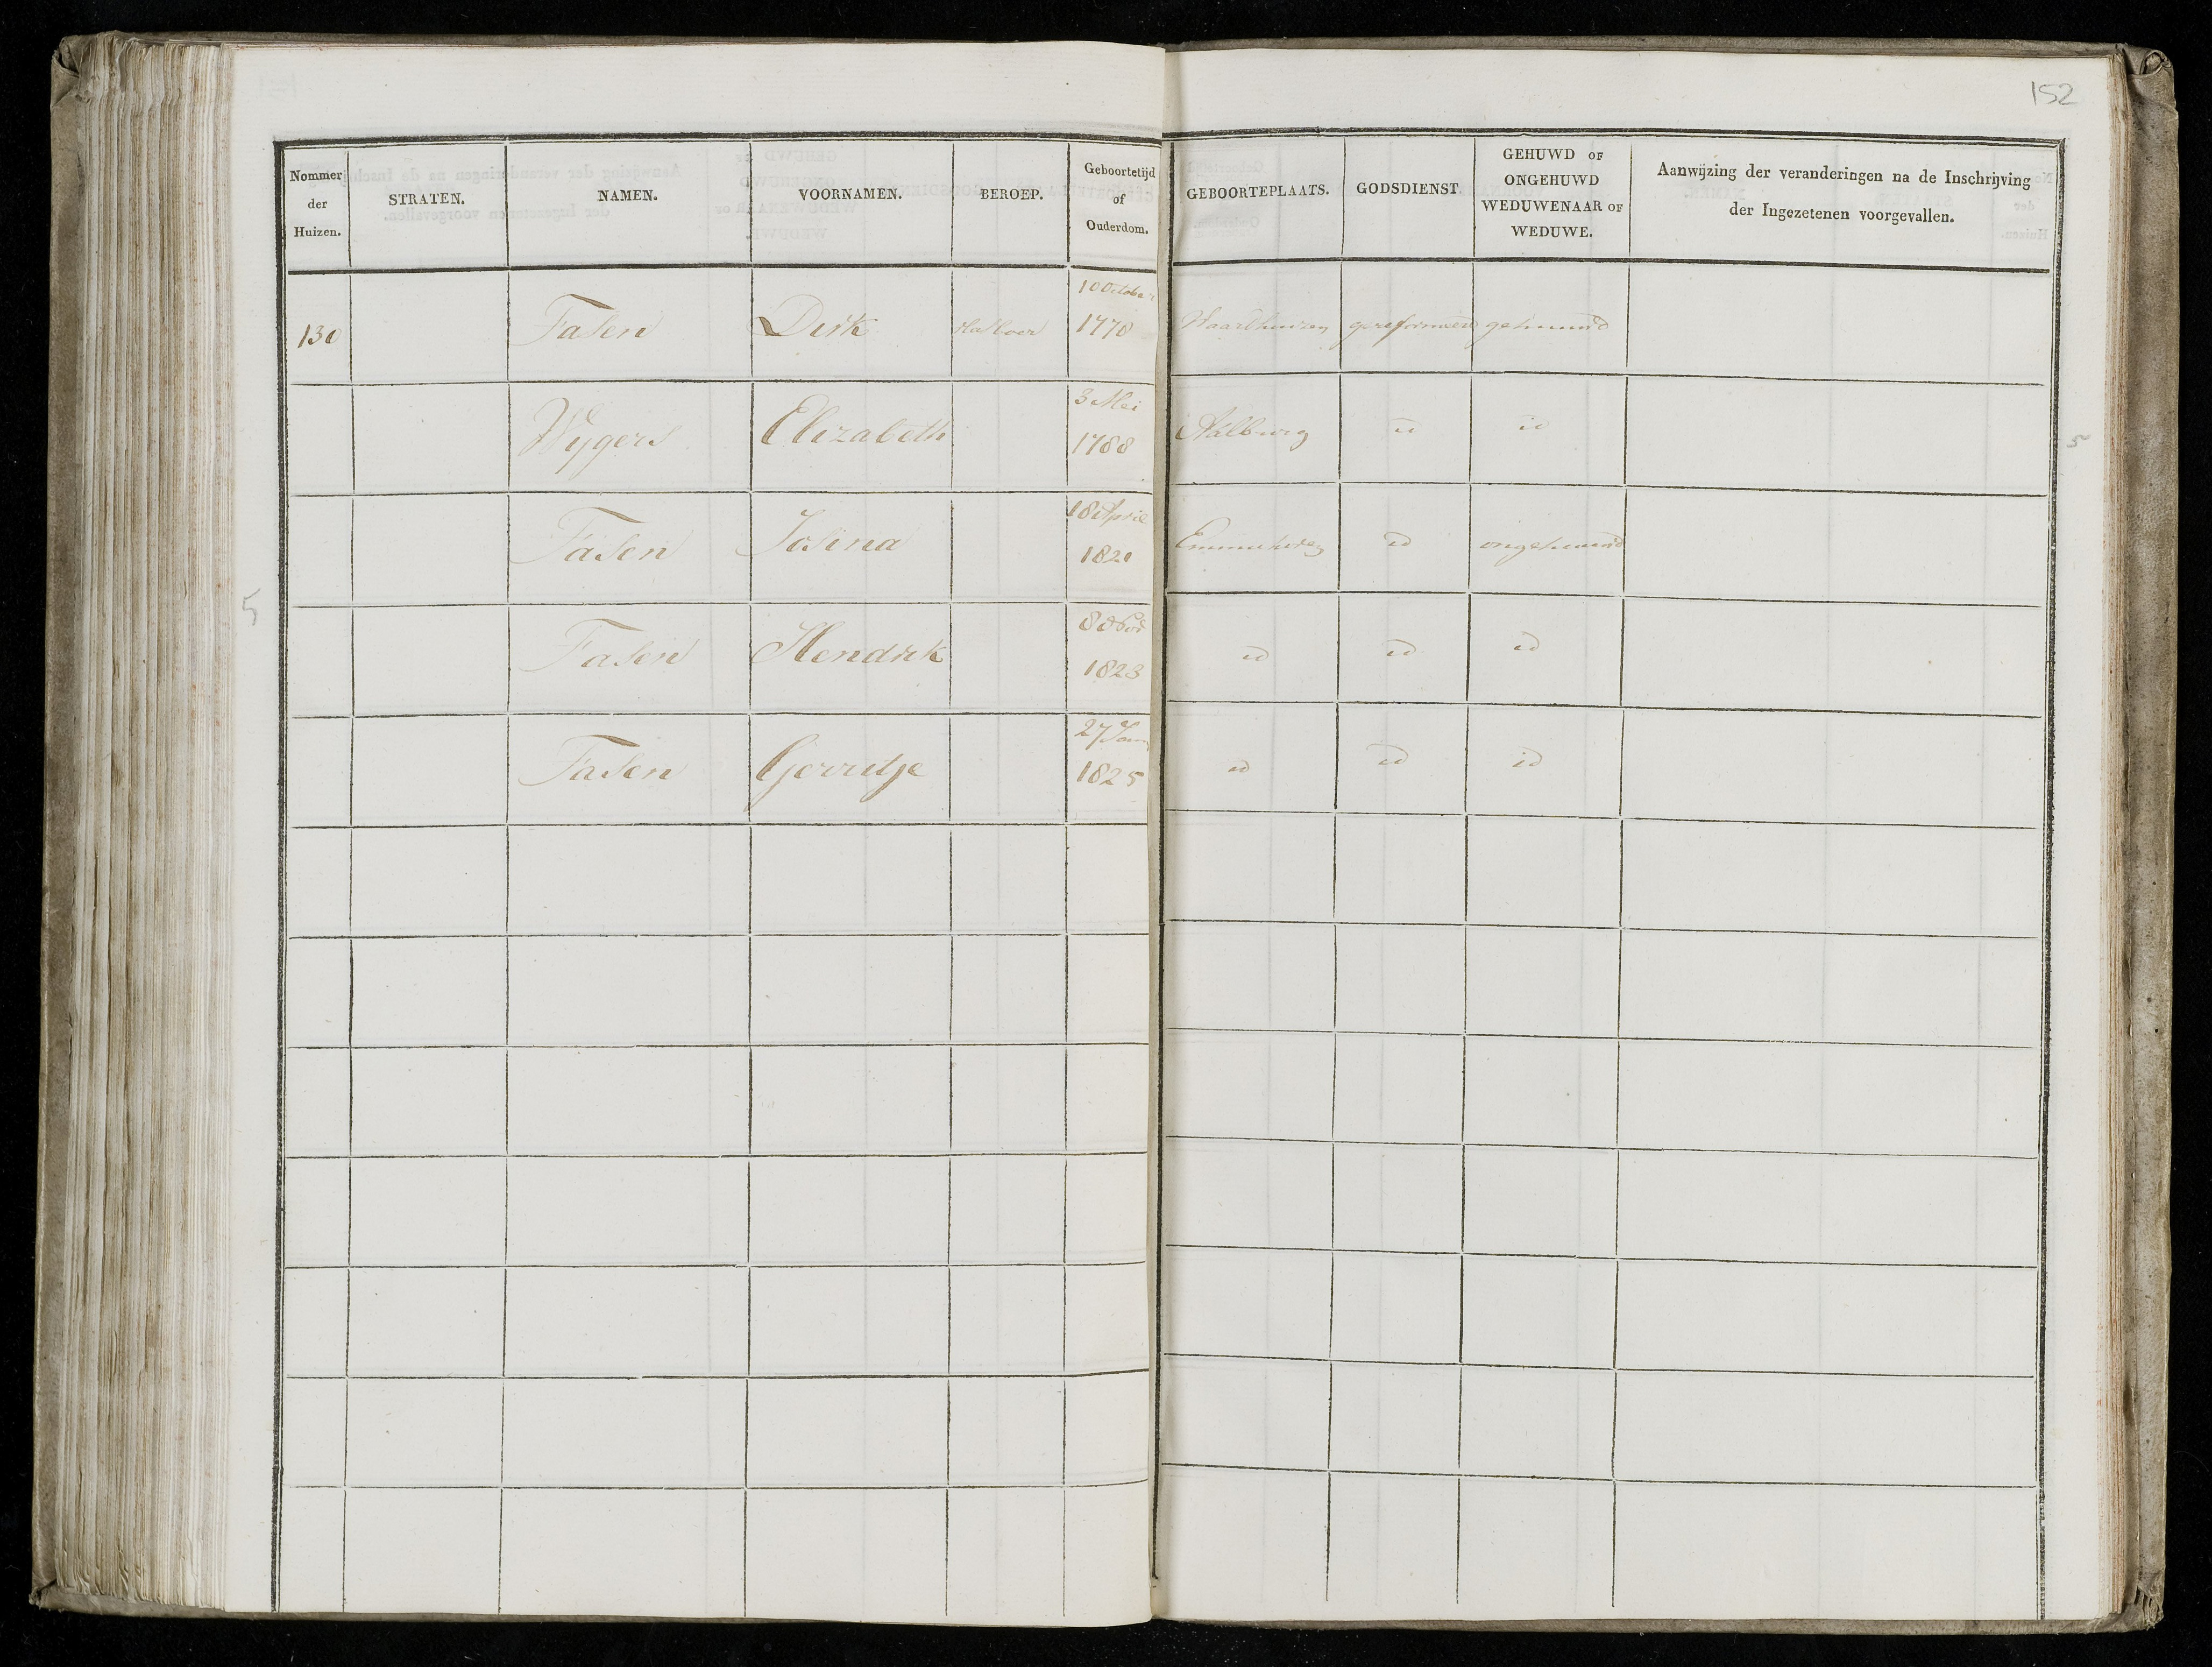 152
Nommer der Huizen. STRATEN. NAMEN. VOORNAMEN. BEROEP. Geboortetijd of Ouderdom. GEBOORTEPLAATS. GODSDIENST. GEHUWD OF ONGEHUWD WEDUWENAAR OF WEDUWE. Aanwijzing der veranderingen na de Inschrijving der Ingezetenen voorgevallen.
130 Fasen Dirk 10 October 1778 gereformeerd gehuuwd
Wygers Elizabeth 3 Mei 1788 Aalburg id id
5
Fasen Josina 18 April 1820 id ongehuuwd
5
Fasen Hendrik 8 1823 id id id
Fasen Gerritje 27 Jann 1825 id id id